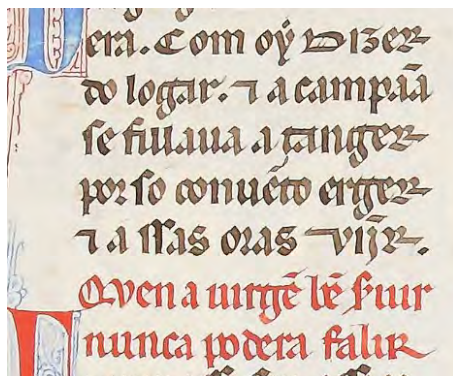 era. Com oý dizer
do logar. ⁊ a campãa
se fillaua a tanger
por so conuẽto erger
⁊ a ssas oras vĩjr.
Qven a uirgẽ bẽ s̕uir
nunca podera falir